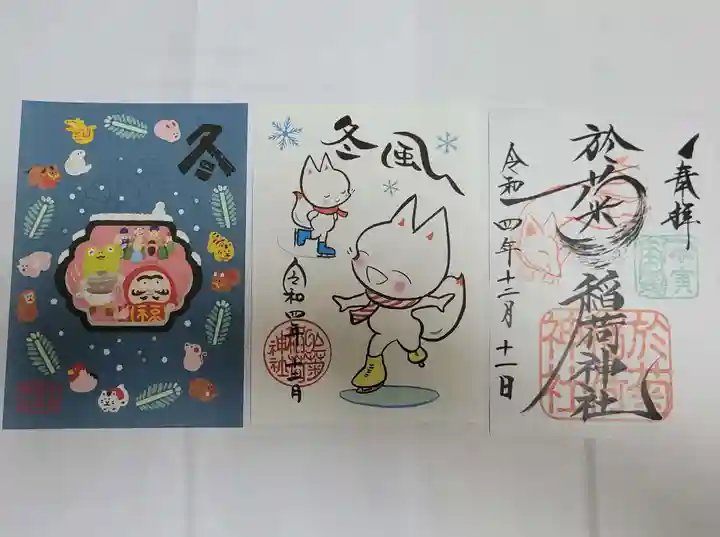 冬
福
冬風
令和四年十二月
奉拝
於菊
稲荷神社
令和四年十二月十一日
於菊
神社